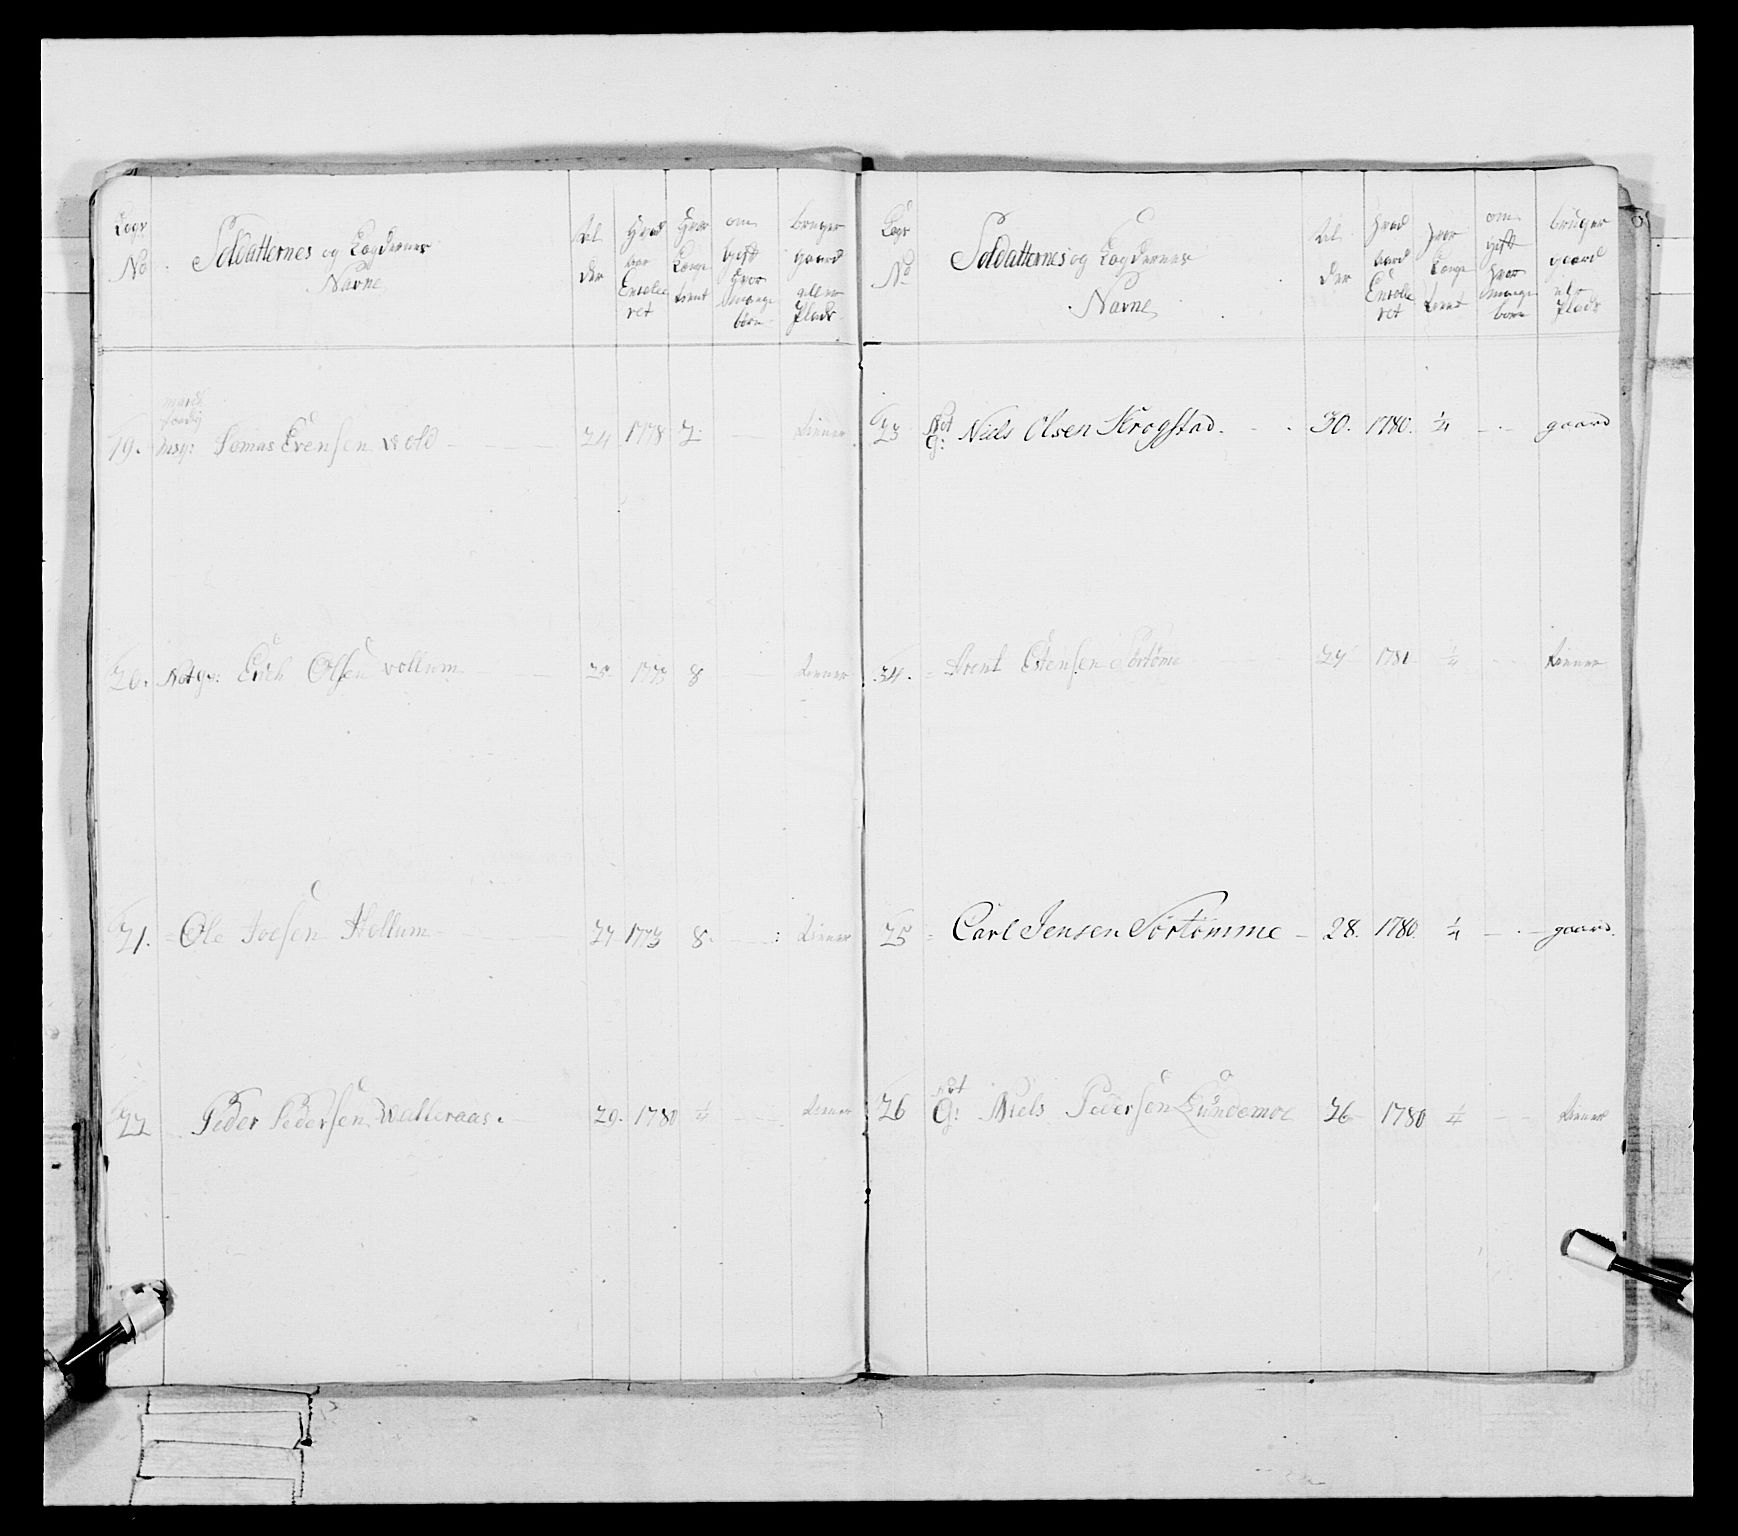 Lags No. Soldatternes og Lagdernes Navne Alder Hvad aar Enrolleret Hvor Længe tient om gift Hvor mange børn bruger gaard eller Plads
19. Msq: Tomas Evensen wold 24 1778 2. tiener
20. Not Gr: Erich Olsen vollum 25 1773 8 tiener
21. Ole Joesen Hollum 27 1773 8. tiener
22 Peder Pedersen Walleraas. 29. 1780 1/4 tiener
Lags No Soldatternes og Lagdernes Navne Alder Hvad aar Enrolleret Hvor Længe tient om gift Hvor mange børn bruger gaard elr Plads
23 Not G: Niels Olsen Krogstad. 30. 1780. 1/4 gaard
24. Arent Estensen Sørtøme 24 1781 1/4 tiener
25 Carl Jensen Sørtømme 28. 1780. 1/4 gaard.
26 Not G: Niels Pedersen Lundemoe 26 1780 1/4 tiener